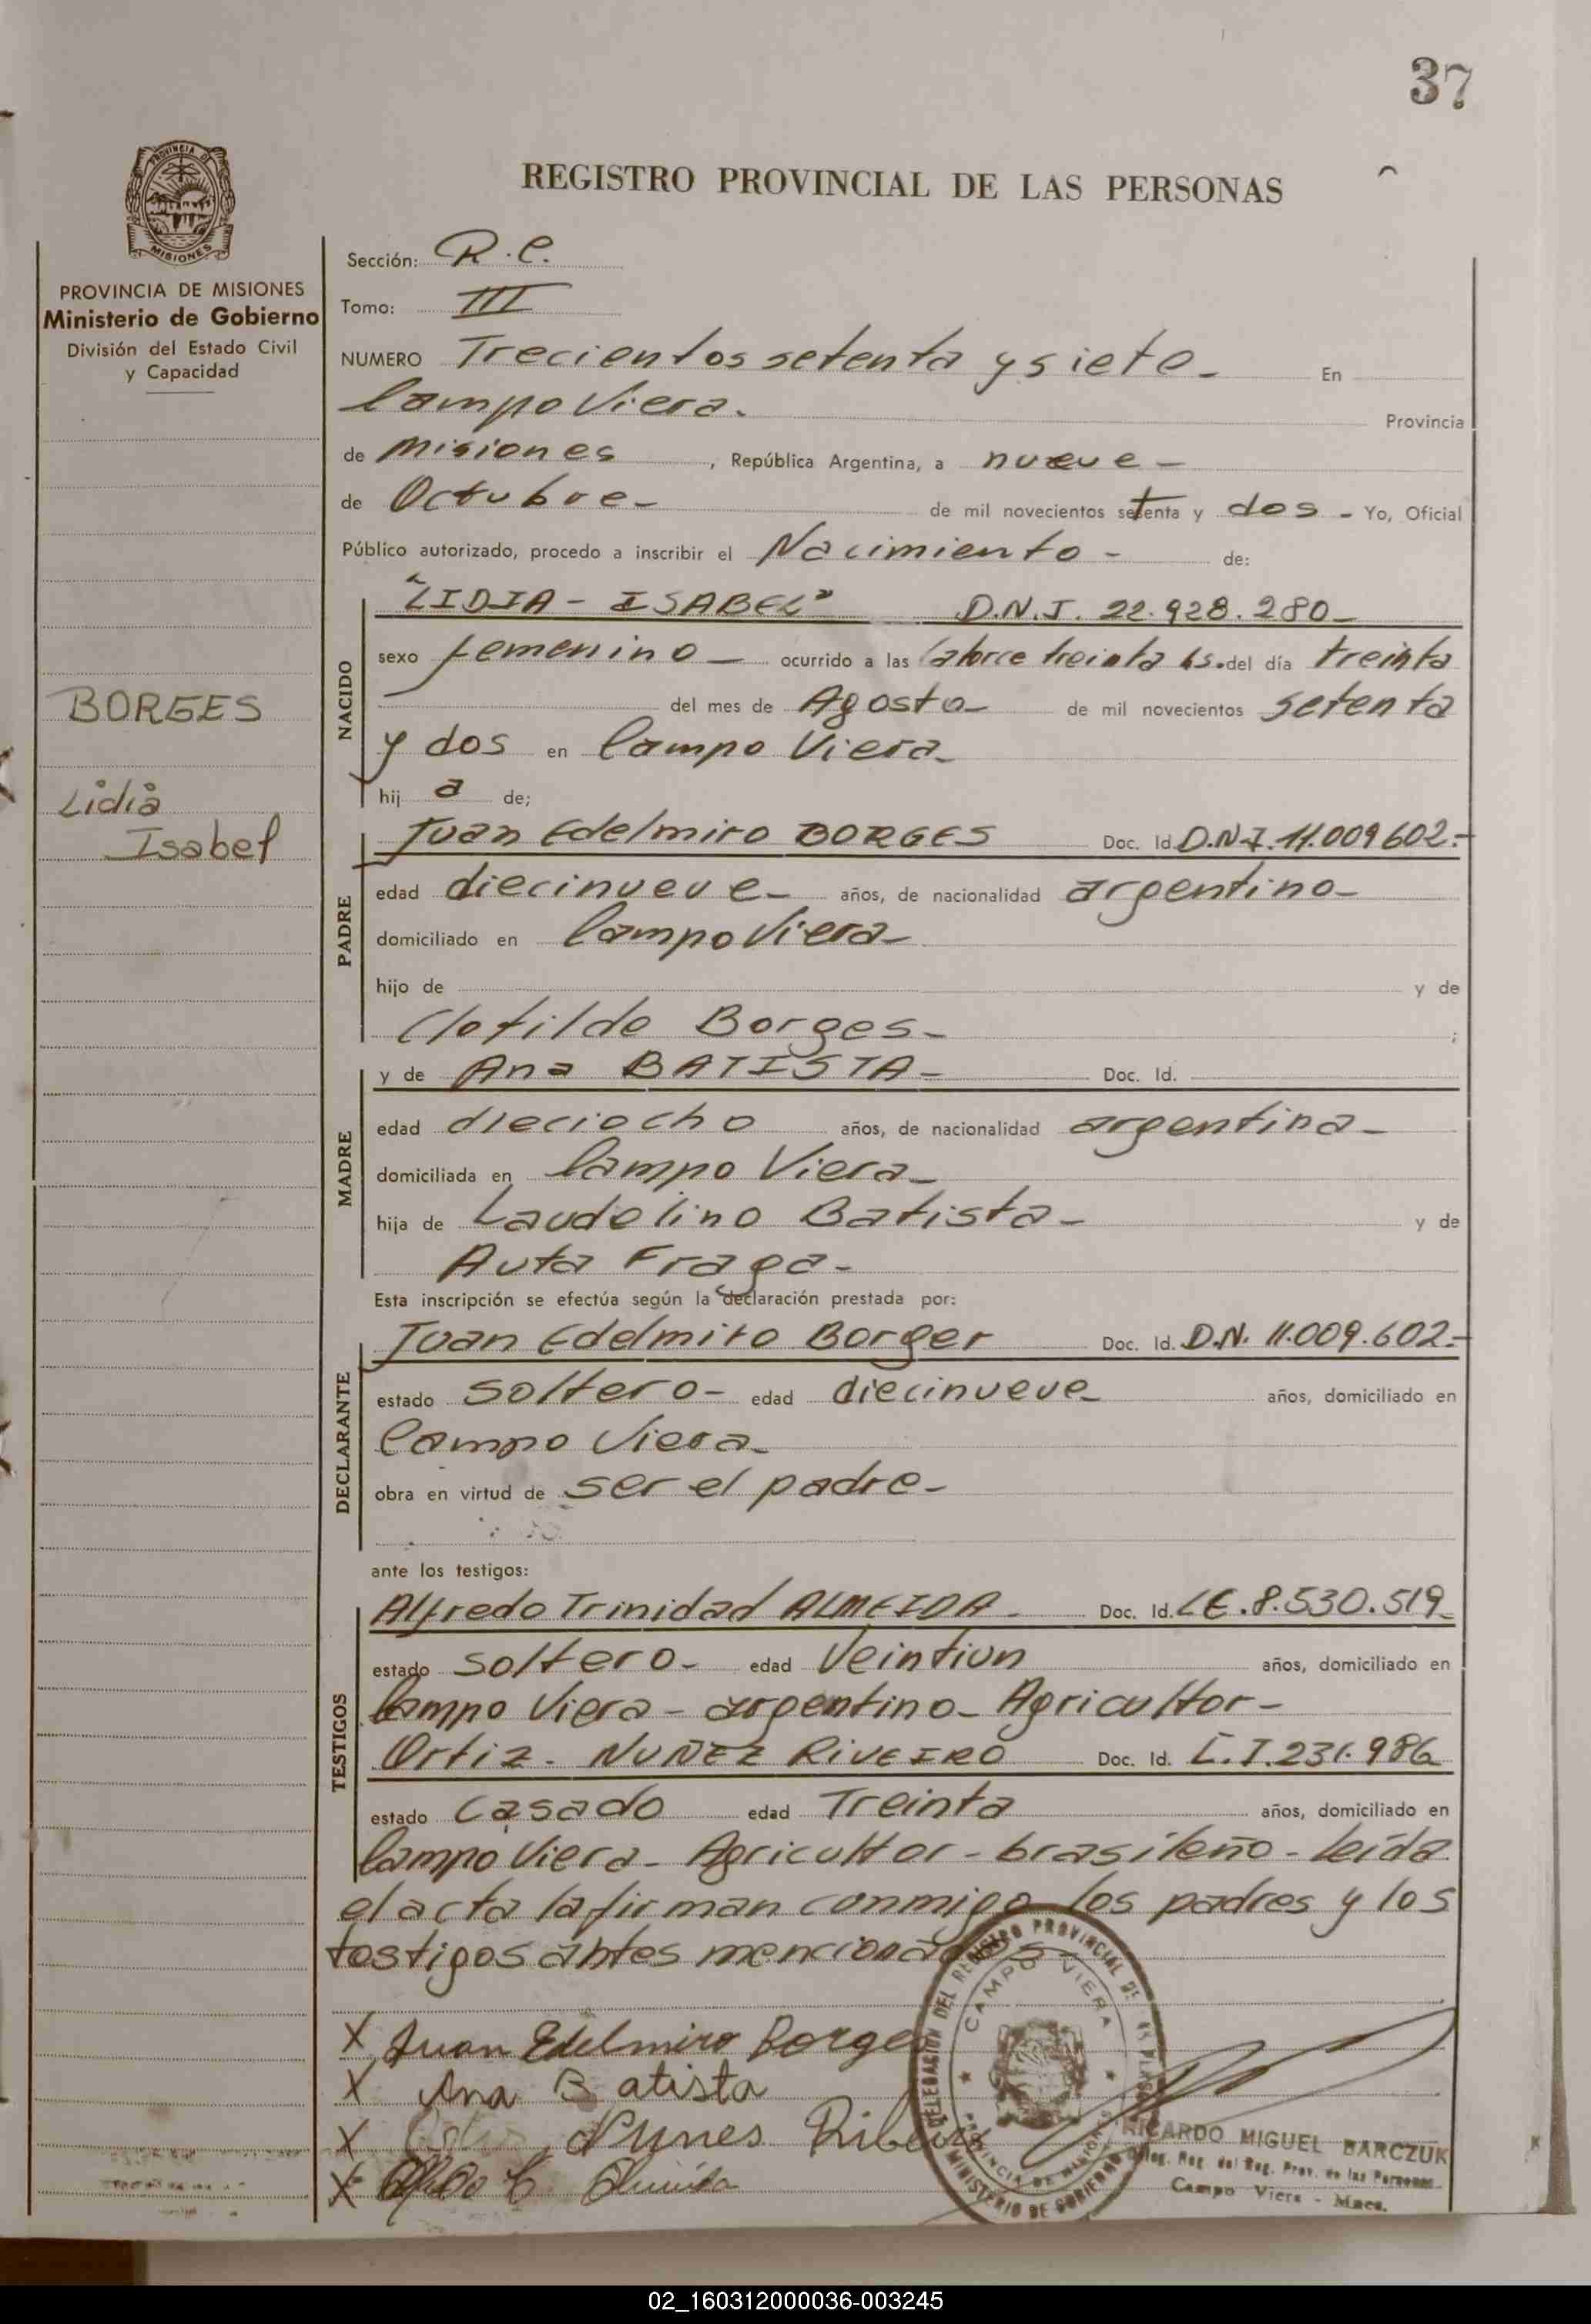 37
REGISTRO PROVINCIAL DE LAS PERSONAS
PROVINCIA DE MISIONES
PROVINCIA DE MISIONES
Ministerio de Gobierno
División del Estado Civil
y Capacidad
BORGES
Lidia
Isabel
Sección: R.C.
Tomo: III
NUMERO Trecientos setenta y siete - En
Campo Viera. Provincia
de Misiones, República Argentina, a nueve -
de Octubre - de mil novecientos setenta y dos - Yo, Oficial
Público autorizado, procedo a inscribir el Nacimiento - de:
NACIDO
"LIDIA - ISABEL" D.N.I. 22.928.280-
sexo femenino - ocurrido a las Catorce treinta hs. del día treinta
del mes de Agosto - de mil novecientos setenta
y dos en Campo Viera -
hij a de;
PADRE
Juan Edelmiro BORGES Doc. Id. D.N.I. 11.009602.-
edad diecinueve - años, de nacionalidad argentino -
domiciliado en Campo Viera -
hijo de y de
Clotilde Borges - ;
MADRE
y de Ana BATISTA - Doc. Id.
edad dieciocho años, de nacionalidad argentina -
domiciliada en Campo Viera -
hija de Laudelino Batista - y de
Auta Fraga -
Esta inscripción se efectúa según la declaración prestada por:
DECLARANTE
Juan Edelmiro Borger Doc. Id. D.N. 11.009.602.-
estado soltero - edad diecinueve - años, domiciliado en
Campo Viera -
obra en virtud de ser el padre -
ante los testigos:
TESTIGOS
Alfredo Trinidad ALMEIDA - Doc. Id. LE.8.530.519-
estado soltero - edad Veintiun años, domiciliado en
Campo Viera - argentino - Agricultor -
Ortiz - NUÑEZ RIVEIRO Doc. Id. C.I.231.986
estado casado edad Treinta años, domiciliado en
Campo Viera - Agricultor - brasileño - Leída
el acta la firman conmigo los padres y los
testigos antes mencionados -
X Juan Edelmiro Borges
X Ana Batista
X Nunes Ribeiro
X Almeida
DELEGACION DEL REGISTRO PROVINCIAL DE LAS PERSONAS
CAMPO VIERA
PROVINCIA DE MISIONES
MINISTERIO DE GOBIERNO
RICARDO MIGUEL BARCZUK
del Reg. Prov. de las Personas
Campo Viera - Mnes.
02_160312000036-003245